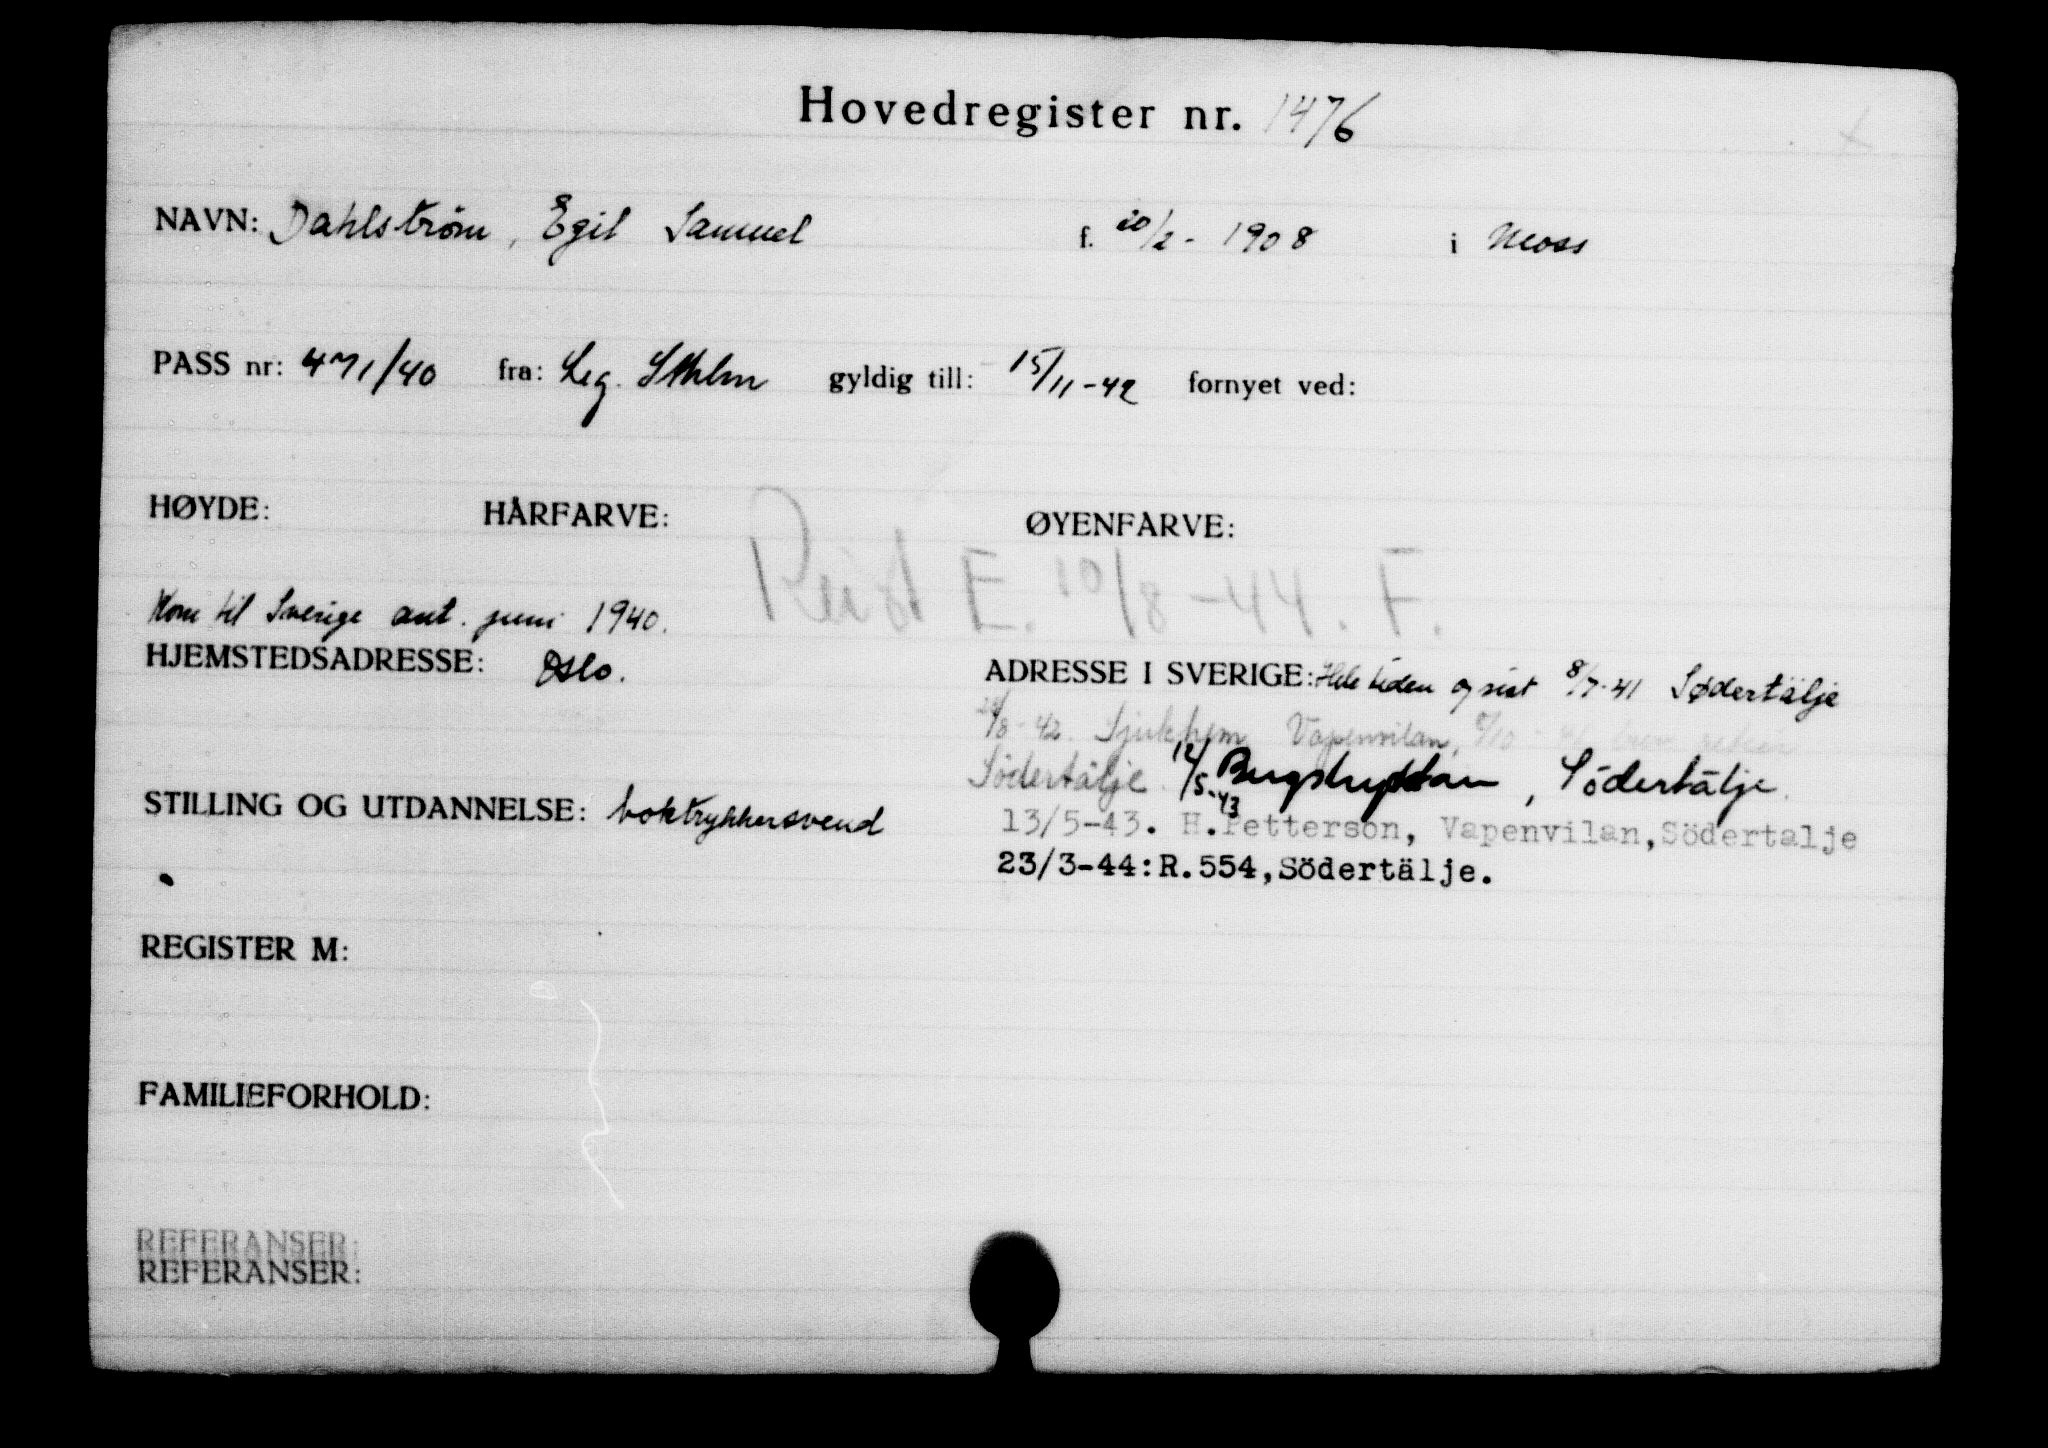 Hovedregister nr. 1476
NAVN: Dahlström, Egil Samuel f. 20/2 - 1908 i Moss
PASS nr: 471/40 fra: Leg. Sthlm gyldig till: 15/11-42 fornyet ved:
HØYDE: HÅRFARVE: ØYENFARVE:
Reist E. 10/8-44. F.
Kom til Sverige ant. juni 1940.
HJEMSTEDSADRESSE: Oslo.
ADRESSE I SVERIGE: Hele tiden og sist 8/7-41 Södertälje
/8-42. Sjukhem Vapenvilan,
Södertälje. 12/5-43 Bergshyddan, Södertälje.
STILLING OG UTDANNELSE: boktrykkersvend
13/5-43. H.Petterson, Vapenvilan, Södertalje
23/3-44:R.554,Södertälje.
REGISTER M:
FAMILIEFORHOLD:
REFERANSER:
REFERANSER: